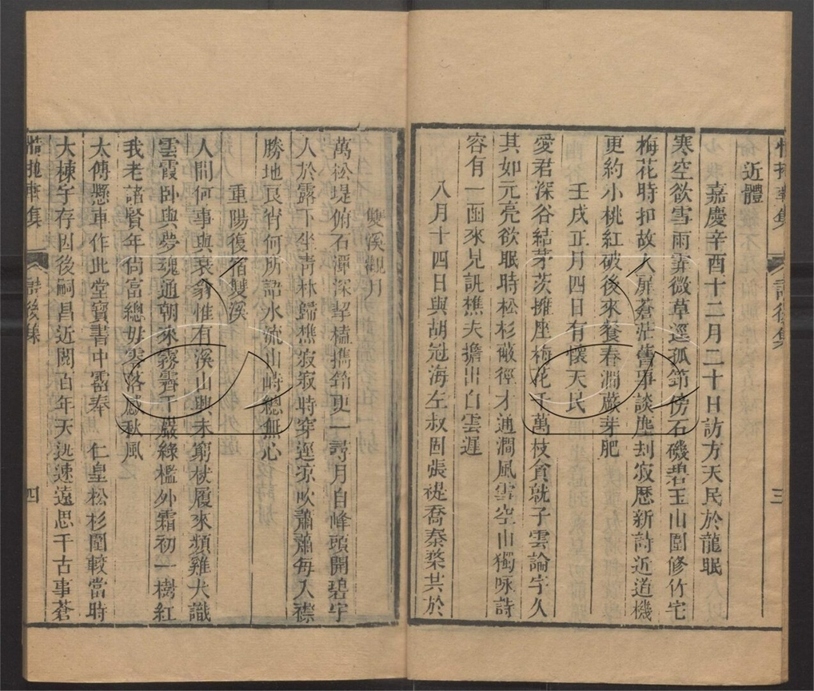 近體
嘉慶辛酉十二月二十日訪方天民於龍眠
寒空欲雪雨霏微草逕孤筇傍石磯碧玉山圍修竹宅
梅花時扣故人扉蒼茫舊事談塵刦寂歷新詩近道機
更約小桃紅破後來餐春澗蕨芽肥
壬戌正月四日有懷天民
愛君深谷結茅茨擁座梅花千萬枝貪就子雲論字久
其如元亮欲眠時松杉蔽徑才通澗風雪空山獨咏詩
容有一函來見訊樵夫擔出白雲遲
八月十四日與胡冠海左叔固張褆喬秦棻共於
三
雙溪觀月
萬松堤俯石潭深挈榼攜筇更一尋月自峰頭開碧宇
人於露下坐青林歸樵寂寂時穿逕凉吹蕭蕭每入襟
勝地良宵何所語水流山峙總無心
重陽復宿雙溪
人間何事與衰翁惟有溪山興未窮杖履來頻雞犬識
雲霞臥與夢魂通朝來霧霽千巖綠檻外霜初一樹紅
我老諸賢年尚富總毋零落感秋風
太傅懸車作此堂寶書中霤奉　仁皇松杉圍較當時
大棟宇存因後嗣昌近闕百年天迅速遠思千古事蒼
惜抱軒集
詩後集
四